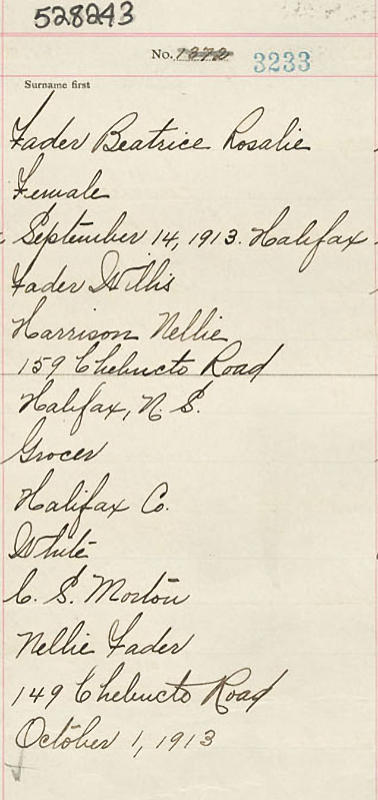 528243
No. 1372 3233
Surname first
Fader Beatrice Rosalie
Female
September 14, 1913. Halifax
Fader Willis
Harrison Nellie
159 Chebucto Road
Halifax, N. S.
Grocer
Halifax Co.
White
C. S. Morton
Nellie Fader
149 Chebucto Road
October 1, 1913